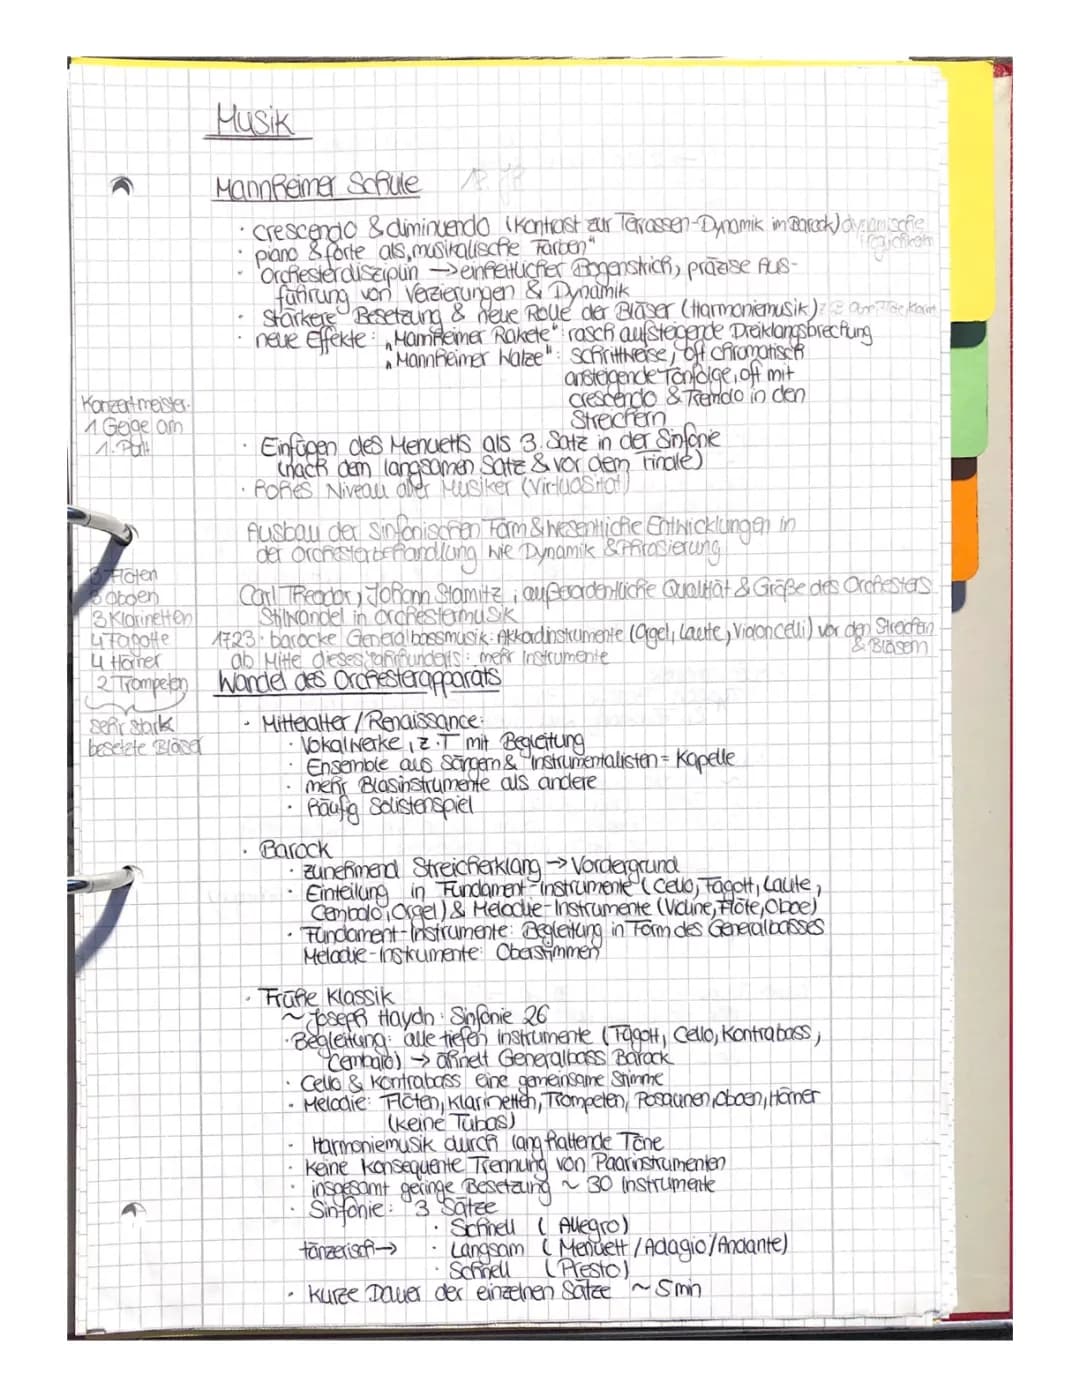 Musik
Mannheimer Schule
· crescendo & diminuendo (Kontrast zur Terassen-Dynamik im Barock) dynamische
· piano & forte als „musikalische Farben"
· Orchesterdisziplin → einheitlicher Bogenstrich, präzise Aus-
führung von Verzierungen & Dynamik
· stärkere Besetzung & neue Rolle der Bläser (Harmoniemusik)
· neue Effekte: „Mannheimer Rakete": rasch aufsteigende Dreiklangsbrechung
„Mannheimer Walze": schrittweise, oft chromatisch
ansteigende Tonfolge, oft mit
crescendo & Tremolo in den
Streichern
Konzertmeister:
1. Geige am
1. Pult
· Einfügen des Menuetts als 3. Satz in der Sinfonie
(nach dem langsamen Satz & vor dem Finale)
· hohes Niveau aller Musiker (Virtuosität)
Ausbau der sinfonischen Form & wesentliche Entwicklungen in
der Orchesterbehandlung wie Dynamik & Phrasierung
3 Flöten
3 Oboen
3 Klarinetten
4 Fagotte
4 Hörner
2 Trompeten
sehr stark
besetzte Bläser
Carl Theodor, Johann Stamitz, außerordentliche Qualität & Größe des Orchesters
Stilwandel in Orchestermusik
1723: barocke Generalbassmusik: Akkordinstrumente (Orgel, Laute, Violoncelli) vor den Streichern
& Bläsern
ab Mitte dieses Jahrhunderts: mehr Instrumente
Wandel des Orchesterapparats
· Mittelalter / Renaissance:
· Vokalwerke, z.T mit Begleitung
· Ensemble aus Sängern & Instrumentalisten = Kapelle
· mehr Blasinstrumente als andere
· häufig Solistenspiel
· Barock
· zunehmend Streicherklang → Vordergrund
· Einteilung in Fundament-Instrumente (Cello, Fagott, Laute,
Cembalo, Orgel) & Melodie-Instrumente (Violine, Flöte, Oboe)
· Fundament-Instrumente: Begleitung in Form des Generalbasses
Melodie-Instrumente: Oberstimmen
· Frühe Klassik
~ Joseph Haydn: Sinfonie 26
· Begleitung: alle tiefen Instrumente (Fagott, Cello, Kontrabass,
Cembalo) → ähnelt Generalbass Barock
· Cello & Kontrabass eine gemeinsame Stimme
· Melodie: Flöten, Klarinetten, Trompeten, Posaunen, Oboen, Hörner
(keine Tubas)
· Harmoniemusik durch lang haltende Töne
· keine konsequente Trennung von Paarinstrumenten
· insgesamt geringe Besetzung ~ 30 Instrumente
· Sinfonie: 3 Sätze
· Schnell (Allegro)
tänzerisch → · Langsam (Menuett / Adagio / Andante)
· Schnell (Presto)
· kurze Dauer der einzelnen Sätze ~ 5 min